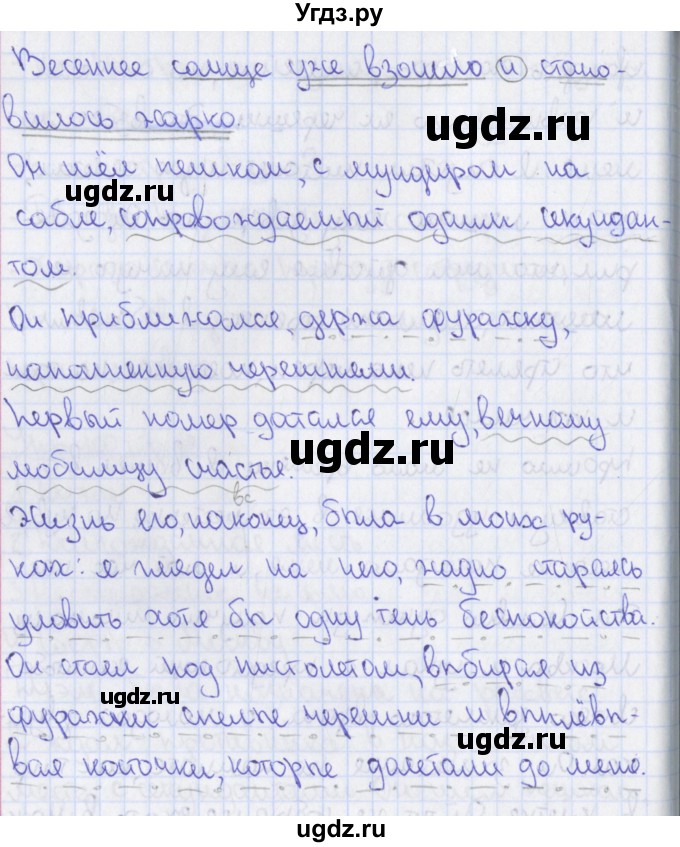 Угдз.ру
Весеннее солнце уже взошло и стано-
вилось жарко.
ugdz.ru
Он шёл пешком, с мундиром на
ugdz.ru
сабле, сопровождаемый одним секундан-
том.
Он приближался, держа фуражку,
наполненную черешнями.
Первый номер достался ему, вечному
ugdz.ru
любимцу счастья.
вс
Жизнь его, наконец, была в моих ру-
ках: я глядел на него, жадно стараясь
уловить хотя бы одну тень беспокойства.
Он стоял под пистолетом, выбирая из
ugdz.ru
фуражки спелые черешни и выплёвы-
ugdz.ru
вая косточки, которые долетали до меня.
ugdz.ru